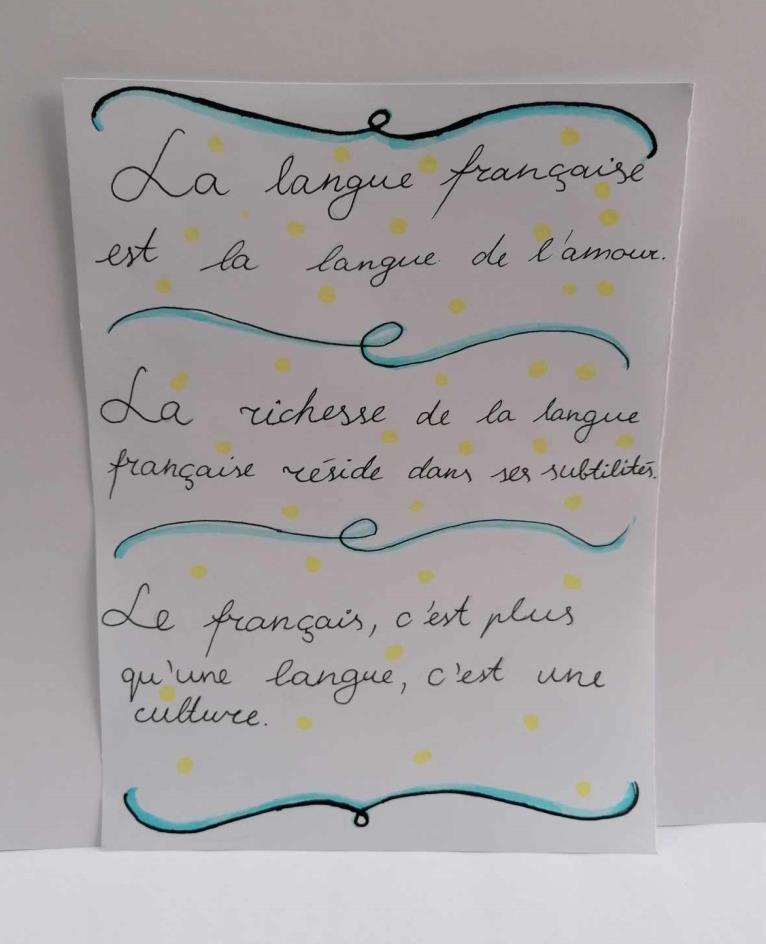 La langue française
est la langue de l'amour.
La richesse de la langue
française réside dans ses subtilités.
Le français, c'est plus
qu'une langue, c'est une
culture.